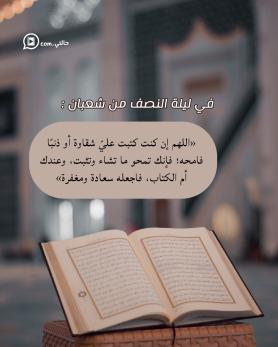 حالتي.com
في ليلة النصف من شعبان :
«اللهم إن كنت كتبت عليّ شقاوة أو ذنبًا
فامحه؛ فإنك تمحو ما تشاء وتثبت، وعندك
أم الكتاب، فاجعله سعادة ومغفرة»